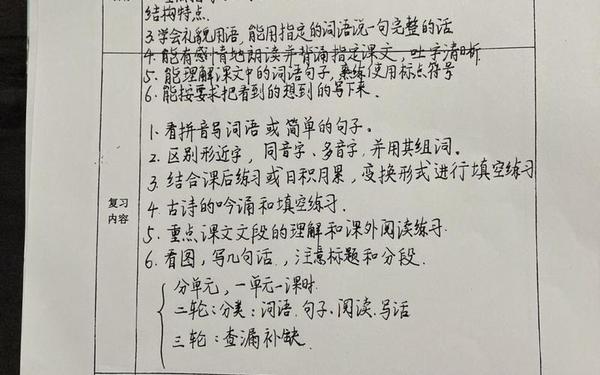 结构特点.
3.学会礼貌用语,能用指定的词语说一句完整的话
4.能有感情地朗读并背诵指定课文,吐字清晰
5.能理解课文中的词语句子,熟练使用标点符号
6.能按要求把看到的想到的写下来.
1.看拼音写词语或简单的句子。
2.区别形近字,同音字、多音字,并用其组词。
3.结合课后练习或日积月累,变换形式进行填空练习
复习
内容
4.古诗的吟诵和填空练习.
5.重点课文文段的理解和课外阅读练习.
6.看图,写几句话,注意标题和分段.
分单元,一单元一课时
二轮:分类:词语.句子.阅读.写话
三轮:查漏补缺.